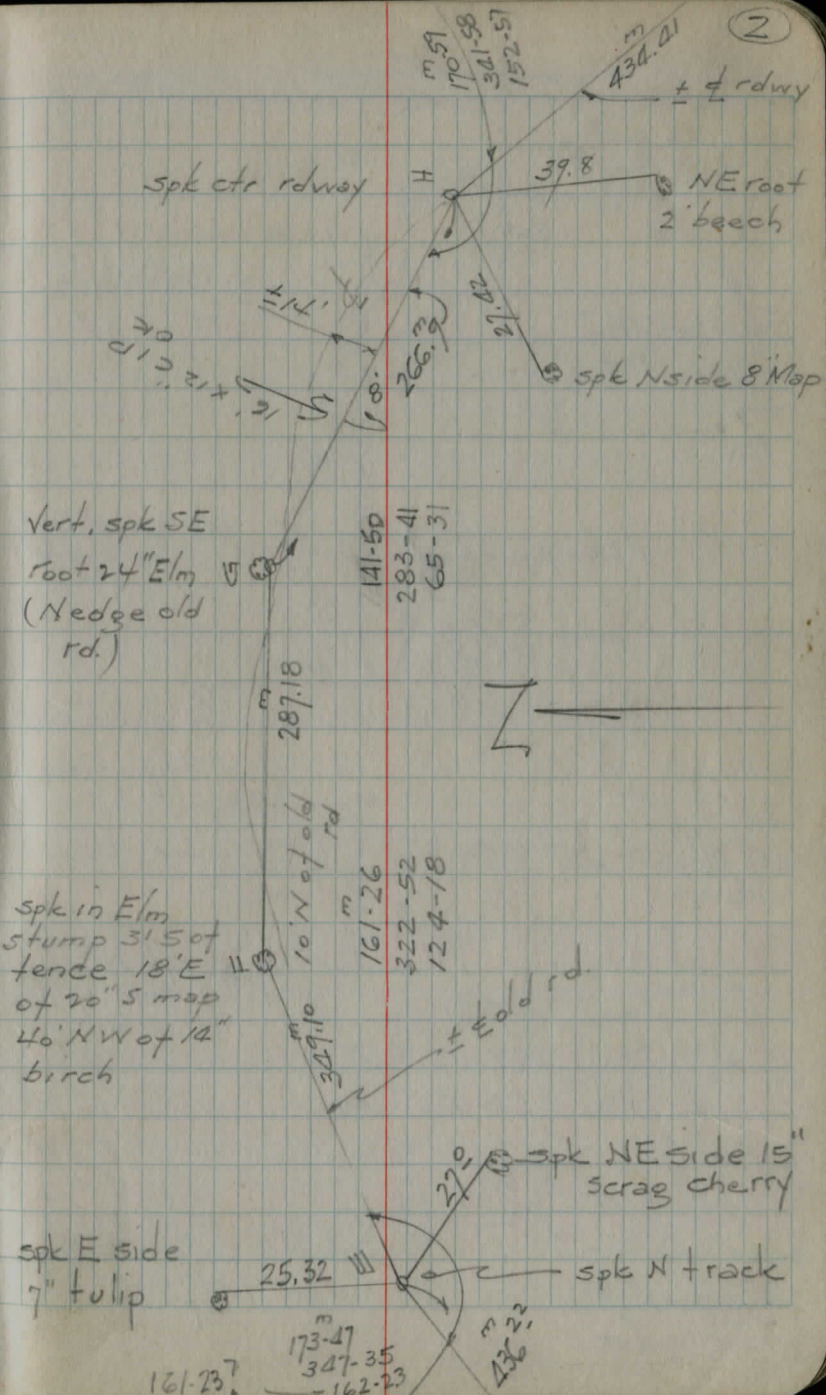 2
m
434.41
± ₵ rdwy
m
170-59
341-58
152-57
spk ctr rdway
H
39.8
NE root
2' beech
27.42
spk N side 8" Map
266.3
18'
Vert. spk SE
root 24" Elm
(N edge old
rd.)
G
141-50
283-41
65-31
m
287.18
10' N of old
rd
m
161-26
322-52
124-18
spk in Elm
stump 3' S of
fence 18' E
of 20" S map
40' NW of 14"
birch
F
m
349.10
± ₵ old rd.
27.0
spk NE side 15"
scrag cherry
spk E side
7" tulip
25.32
E
spk N track
m
436-22
m
173-47
347-35
162-23
161-23?